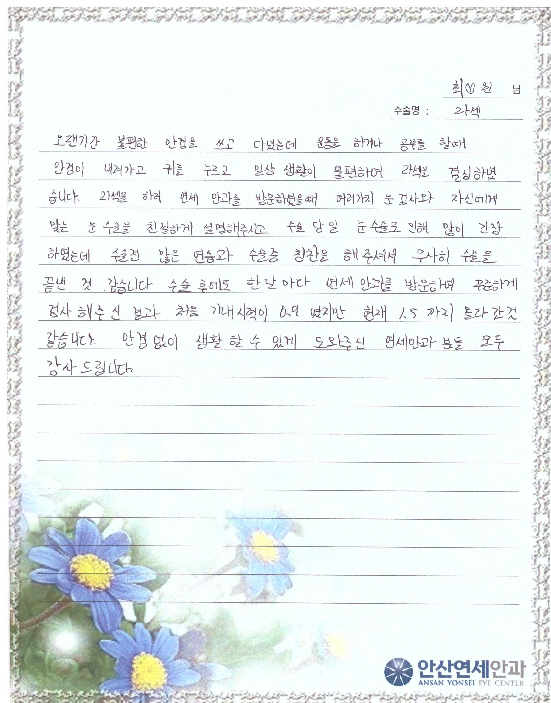 최♡원 님
수술명 : 라섹
오랜기간 불편한 안경을 쓰고 다녔는데 운동을 하거나 공부를 할때
안경이 내려가고 귀를 누르고 일상 생활이 불편하여 라섹을 결심하였
습니다. 라섹을 하러 연세 안과를 방문하였을때 여러가지 눈 검사와 자신에게
맞는 눈 수술을 친절하게 설명해주시고 수술 당일 눈 수술로 인해 많이 긴장
하였는데 수술전 많은 연습과 수술중 칭찬을 해 주셔서 무사히 수술을
끝낸 것 같습니다 수술 후에도 한달 마다 연세 안과를 방문하며 꾸준하게
검사 해주신 결과 처음 기대시력이 0.9 였지만 현재 1.5 까지 올라간것
같습니다. 안경 없이 생활 할 수 있게 도와주신 연세안과 분들 모두
감사 드립니다.
안산연세안과
ANSAN YONSEI EYE CENTER